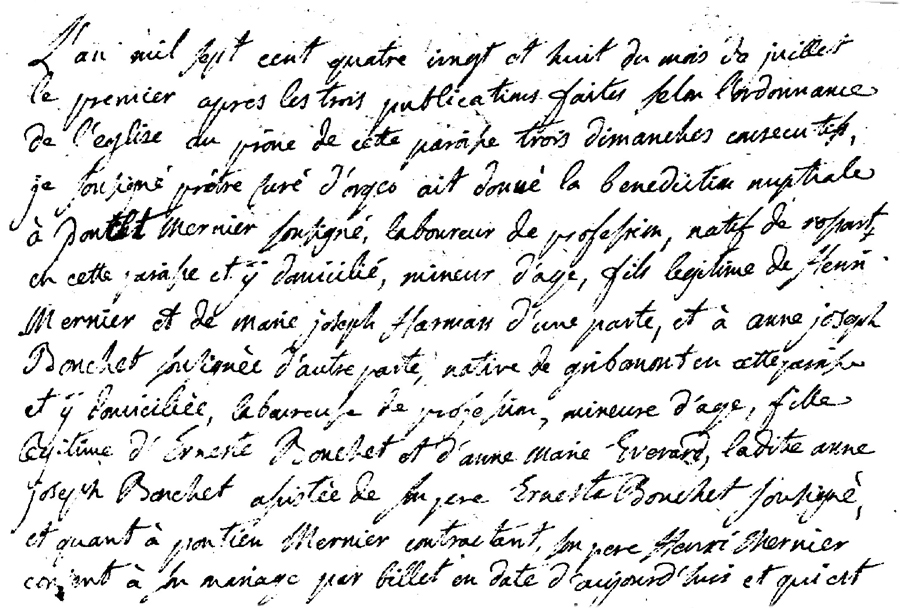 L'an mil sept cent quatre vingt et huit du mois de juillet
le premier apres les trois publications faites selon l'ordonnance
de l'eglise au prone de cette paroisse trois dimanches consecutifs,
je soussigné prêtre curé d'orgeo ait donné la benediction nuptiale
à Mernier soussigné, laboureur de profession, natif de rossart
en cette paroisse et ÿ domicilié, mineur d'age, fils legitime de Henri
Mernier et de marie joseph Harman d'une parte, et à anne joseph
Bouchet soussignée d'autre parte, native de gribomont en cette paroisse
et ÿ domiciliée, laboureuse de profession, mineure d'age, fille
legitime d'Erneste Bouchet et d'anne Marie Everard, ladite anne
joseph Bouchet assistée de son pere Erneste Bouchet soussigné,
et quant à pontien Mernier contractant, son pere Henri Mernier
consent à son mariage par billet en date d'aujourd'huis et qui est